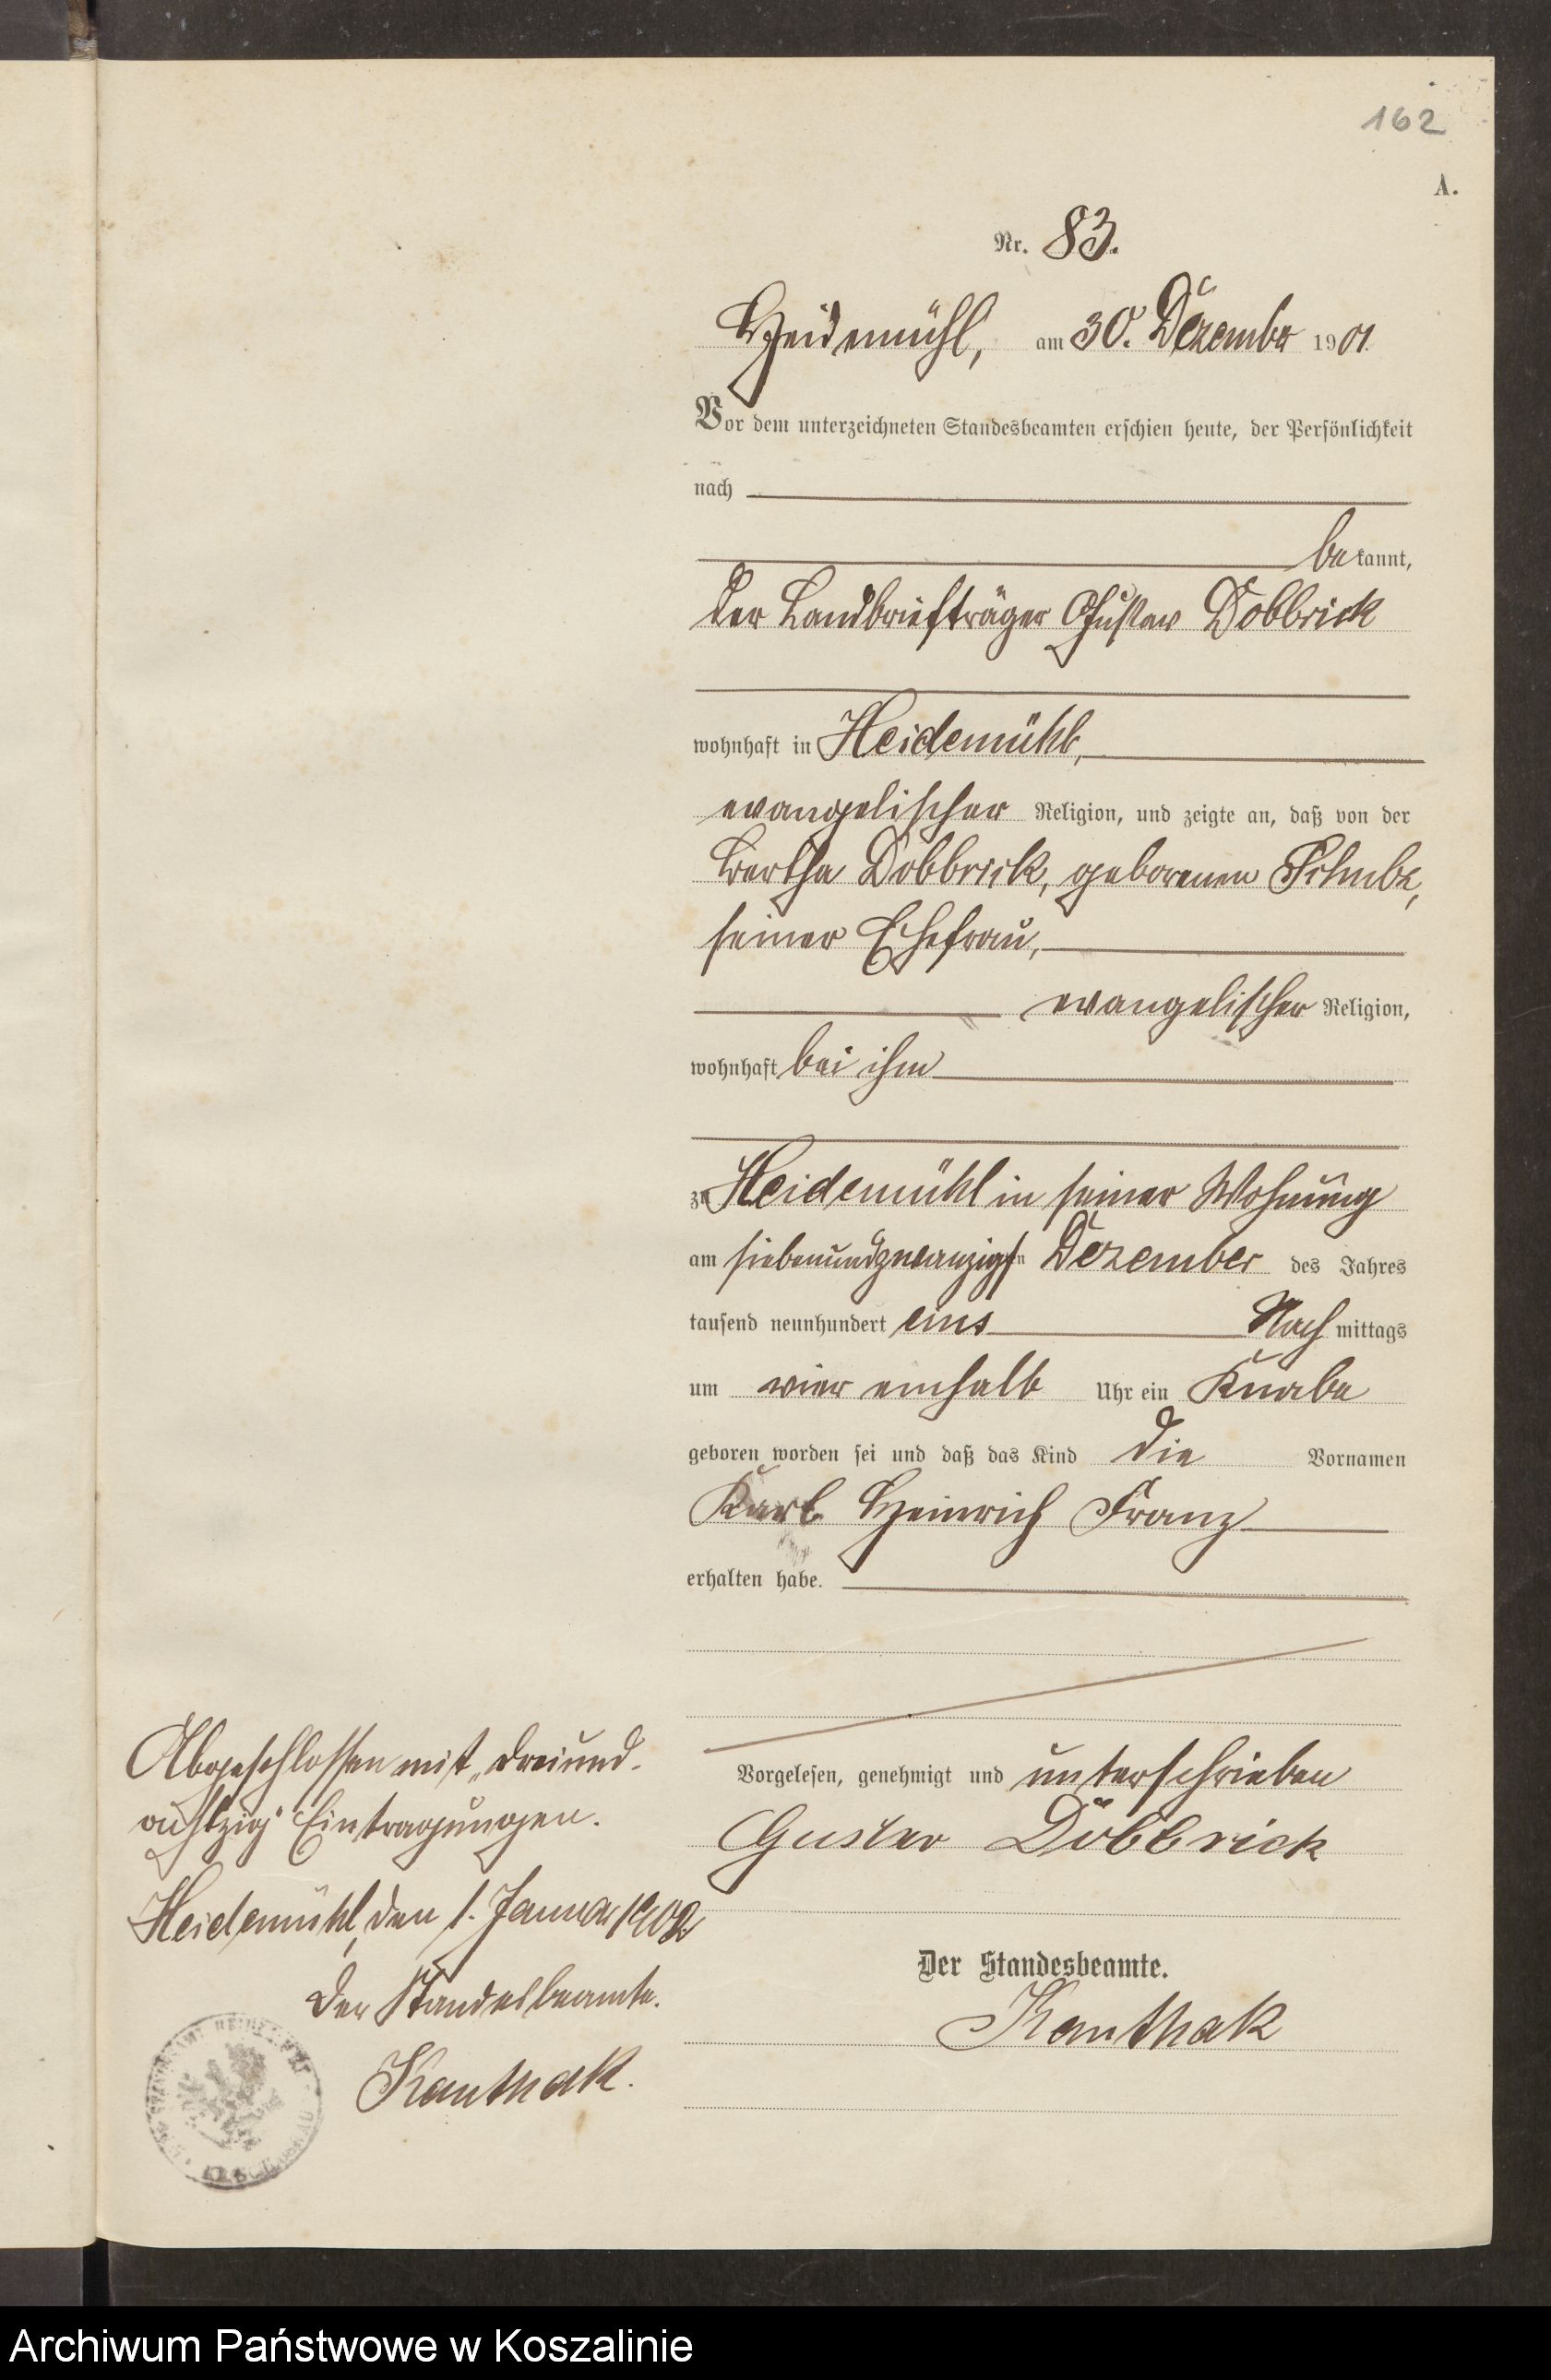 162
A.
Nr. 83.
Heidemühl, am 30. Dezember 1901.
Vor dem unterzeichneten Standesbeamten erschien heute, der Persönlichkeit
nach
bekannt,
der Landbriefträger Gustav Dobbrick
wohnhaft in Heidemühl,
evangelischer Religion, und zeigte an, daß von der
Bertha Dobbrick, geborenen
seiner Ehefrau,
evangelischer Religion,
wohnhaft bei ihm
zu Heidemühl in seiner Wohnung
am siebenundzwanzigsten Dezember des Jahres
tausend neunhundert eins Nach mittags
um vier einhalb Uhr ein Knabe
geboren worden sei und daß das Kind die Vornamen
Karl Heinrich Franz
erhalten habe.
Vorgelesen, genehmigt und unterschrieben
Gustav Dobbrick
Der Standesbeamte.
Kanthak
Abgeschlossen mit „dreiund-
achtzig" Eintragungen.
Heidemühl, den 1. Januar 1902
Der Standesbeamte.
Kanthak.
Archiwum Państwowe w Koszalinie